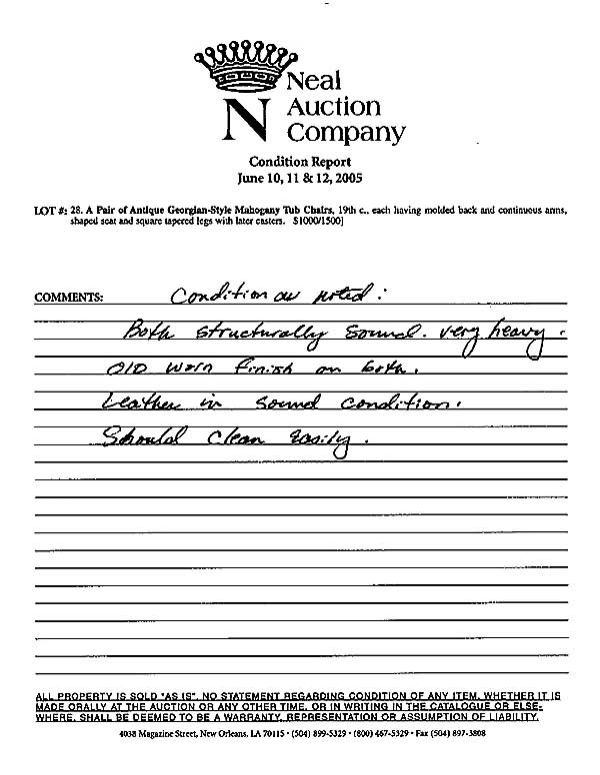 Neal
N Auction
Company
Condition Report
June 10, 11 & 12, 2005
LOT #: 28. A Pair of Antique Georgian-Style Mahogany Tub Chairs, 19th c., each having molded back and continuous arms,
shaped seat and square tapered legs with later casters. $1000/1500]
COMMENTS: Condition as noted:
Both structurally sound. very heavy.
Old worn finish on both.
Leather in sound condition.
Should clean easily.
ALL PROPERTY IS SOLD "AS IS". NO STATEMENT REGARDING CONDITION OF ANY ITEM, WHETHER IT IS
MADE ORALLY AT THE AUCTION OR ANY OTHER TIME, OR IN WRITING IN THE CATALOGUE OR ELSE-
WHERE, SHALL BE DEEMED TO BE A WARRANTY, REPRESENTATION OR ASSUMPTION OF LIABILITY.
4038 Magazine Street, New Orleans, LA 70115 • (504) 899-5329 • (800) 467-5329 • Fax (504) 897-3808